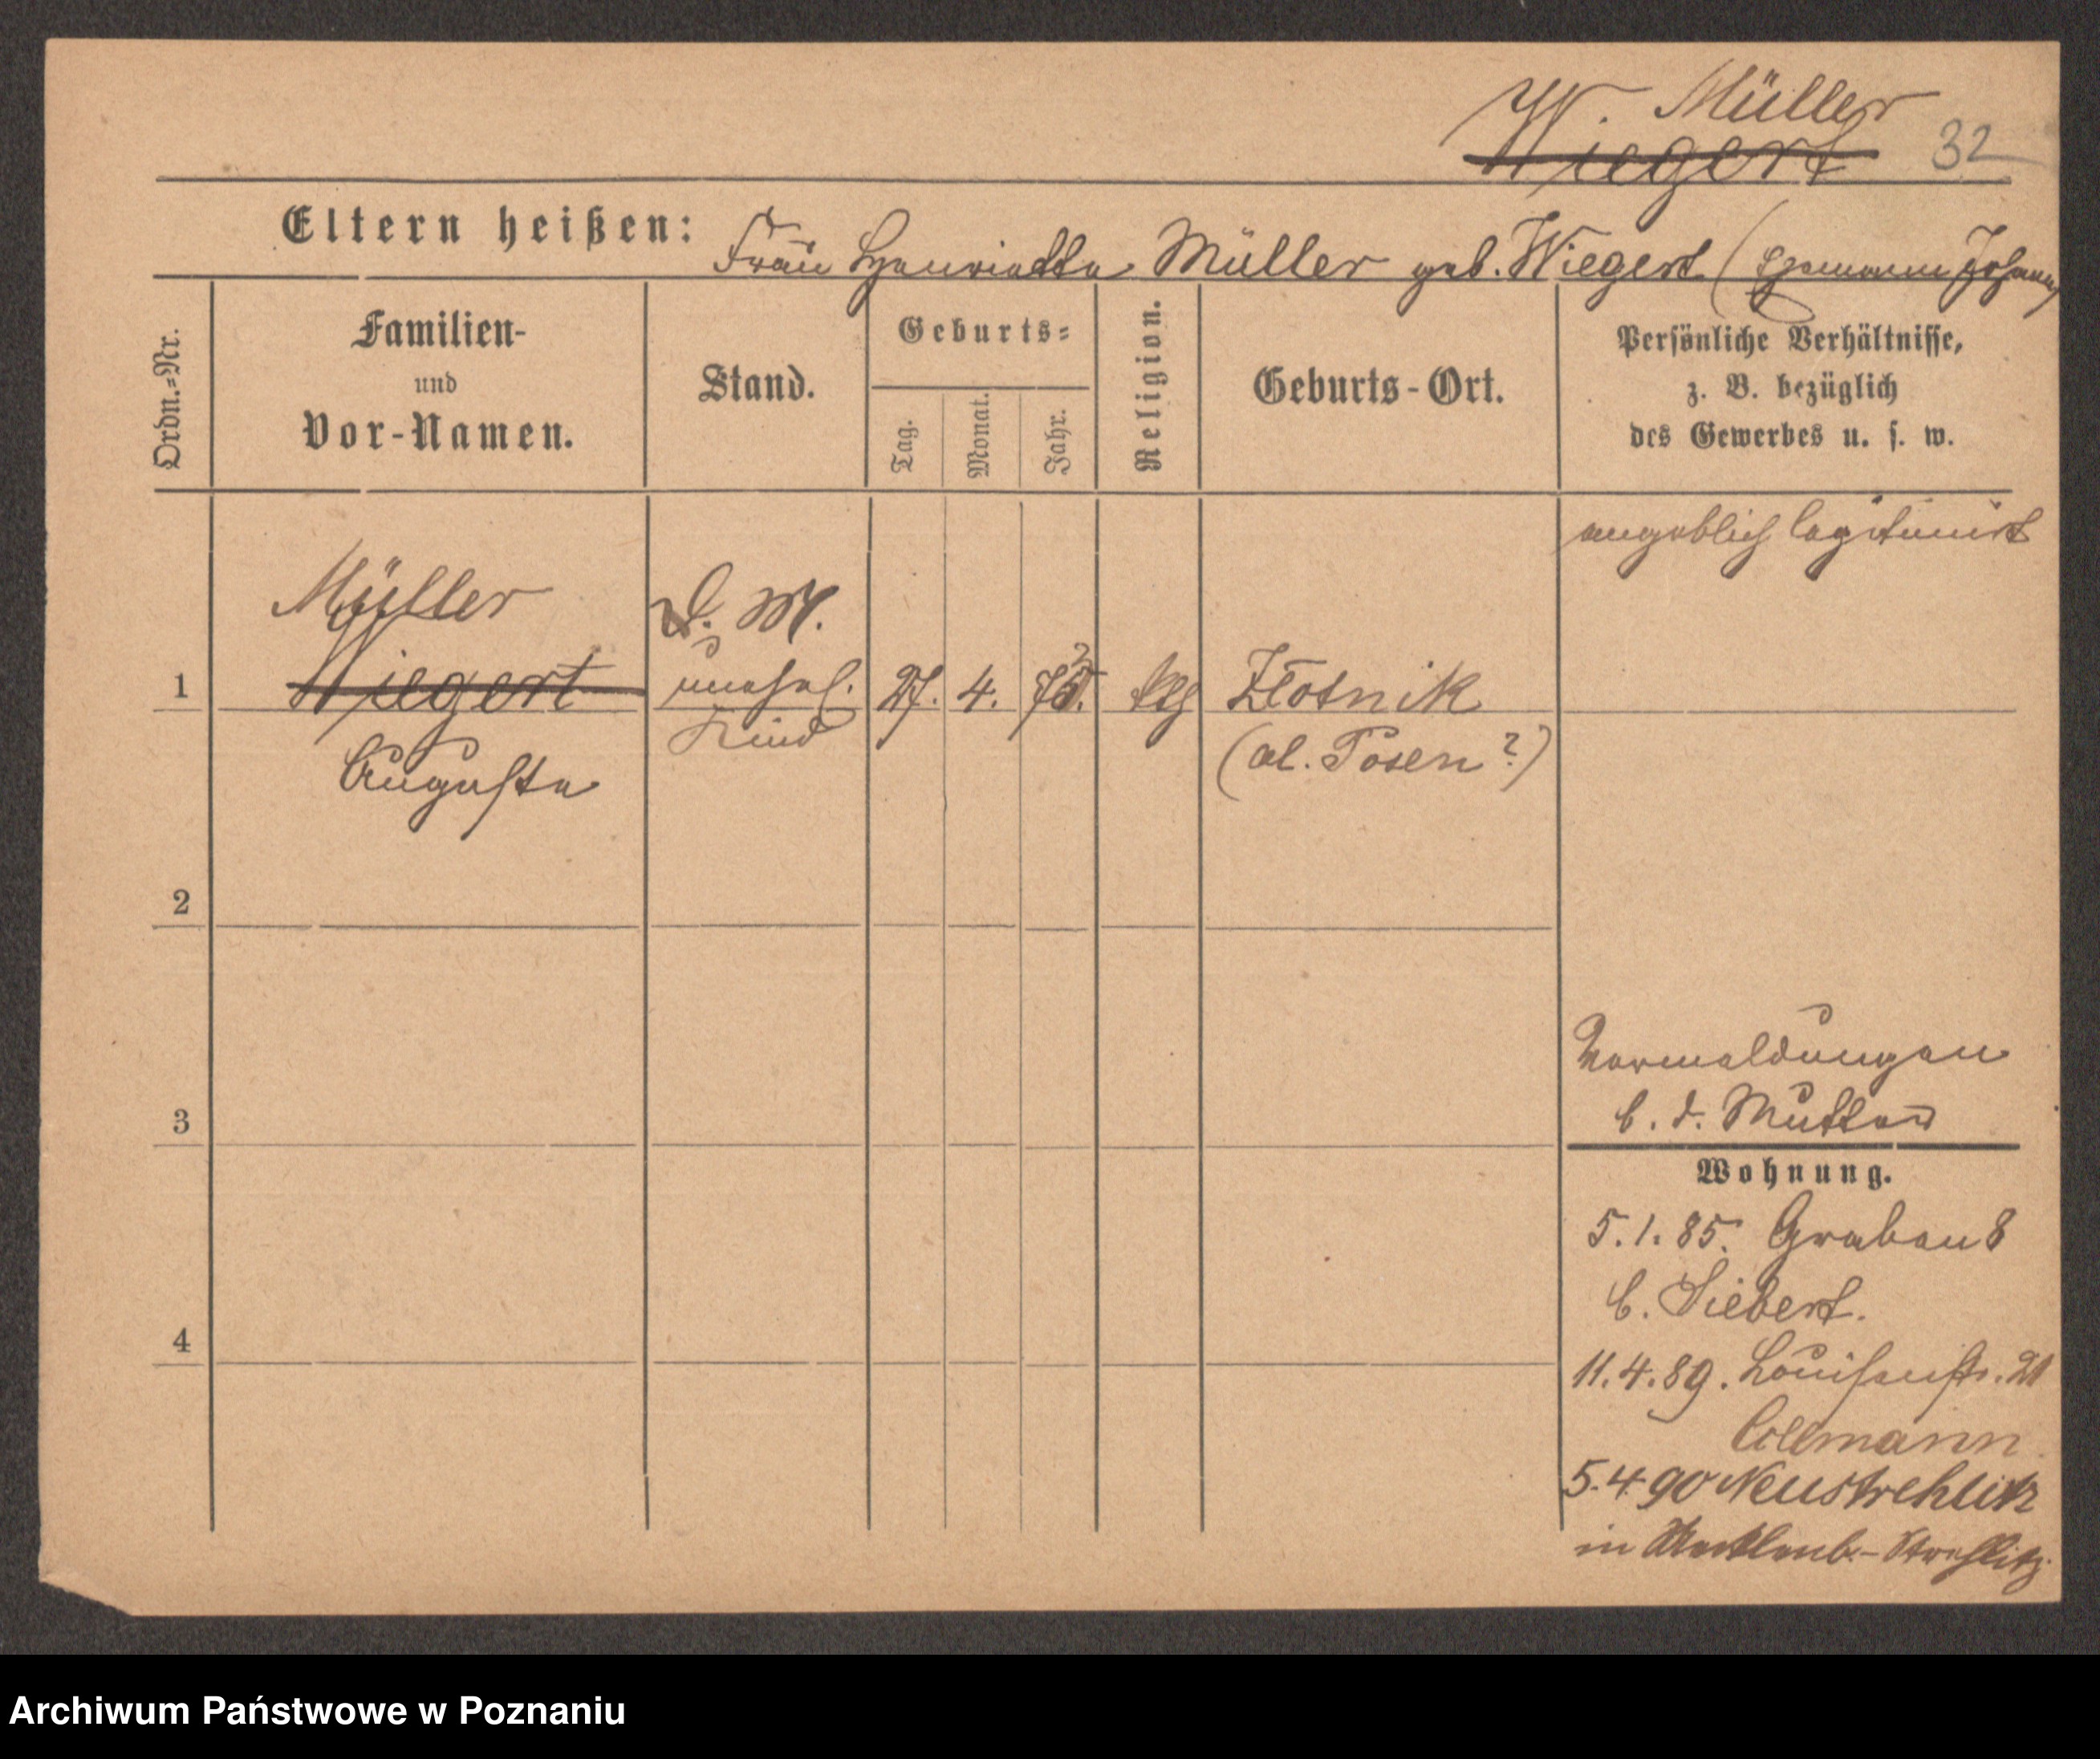 W. Müller
Wiegert 32
Eltern heißen: Frau Henriette Müller geb. Wiegert (Ehemann Johann)
Ordn.=Nr.
Familien-
und
Vor-Namen.
Stand.
Geburts=
Tag.
Monat.
Jahr.
Religion.
Geburts-Ort.
Persönliche Verhältnisse,
z. B. bezüglich
des Gewerbes u. s. w.
angeblich legitimirt
Müller
D. M.
1 Wiegert unehel. 27. 4. 75. Złotnik
Kind
Auguste
(al. Posen?)
2
Vormeldungen
b. d. Mutter
3
Wohnung.
5.1.85. Graben 8
b. Siebert.
4
11.4.89. Louisenstr. 21
Collmann
5.4.90 Neustrehlitz
in Mecklenb.-Strehlitz.
Archiwum Państwowe w Poznaniu